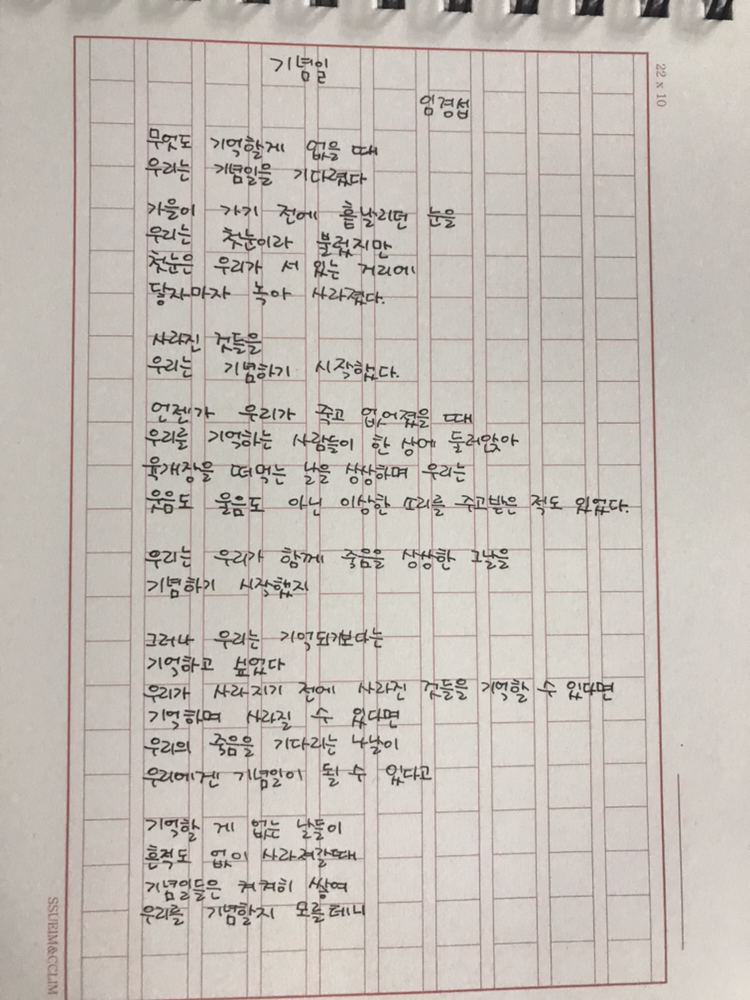 기념일
임경섭
무엇도 기억할게 없을 때
우리는 기념일을 기다렸다
가을이 가기 전에 흩날리던 눈을
우리는 첫눈이라 불렀지만
첫눈은 우리가 서 있는 거리에
닿자마자 녹아 사라졌다.
사라진 것들을
우리는 기념하기 시작했다.
언젠가 우리가 죽고 없어졌을 때
우리를 기억하는 사람들이 한 상에 둘러앉아
육개장을 떠먹는 날을 상상하며 우리는
웃음도 울음도 아닌 이상한 소리를 주고받은 적도 있었다.
우리는 우리가 함께 죽음을 상상한 그날을
기념하기 시작했지
그러나 우리는 기억되기보다는
기억하고 싶었다
우리가 사라지기 전에 사라진 것들을 기억할 수 있다면
기억하며 사라질 수 있다면
우리의 죽음을 기다리는 나날이
우리에겐 기념일이 될 수 있다고
기억할 게 없는 날들이
흔적도 없이 사라져갈때
기념일들은 켜켜히 쌓여
우리를 기념할지 모를테니
22 x 10
SSUEIM&CCLIM